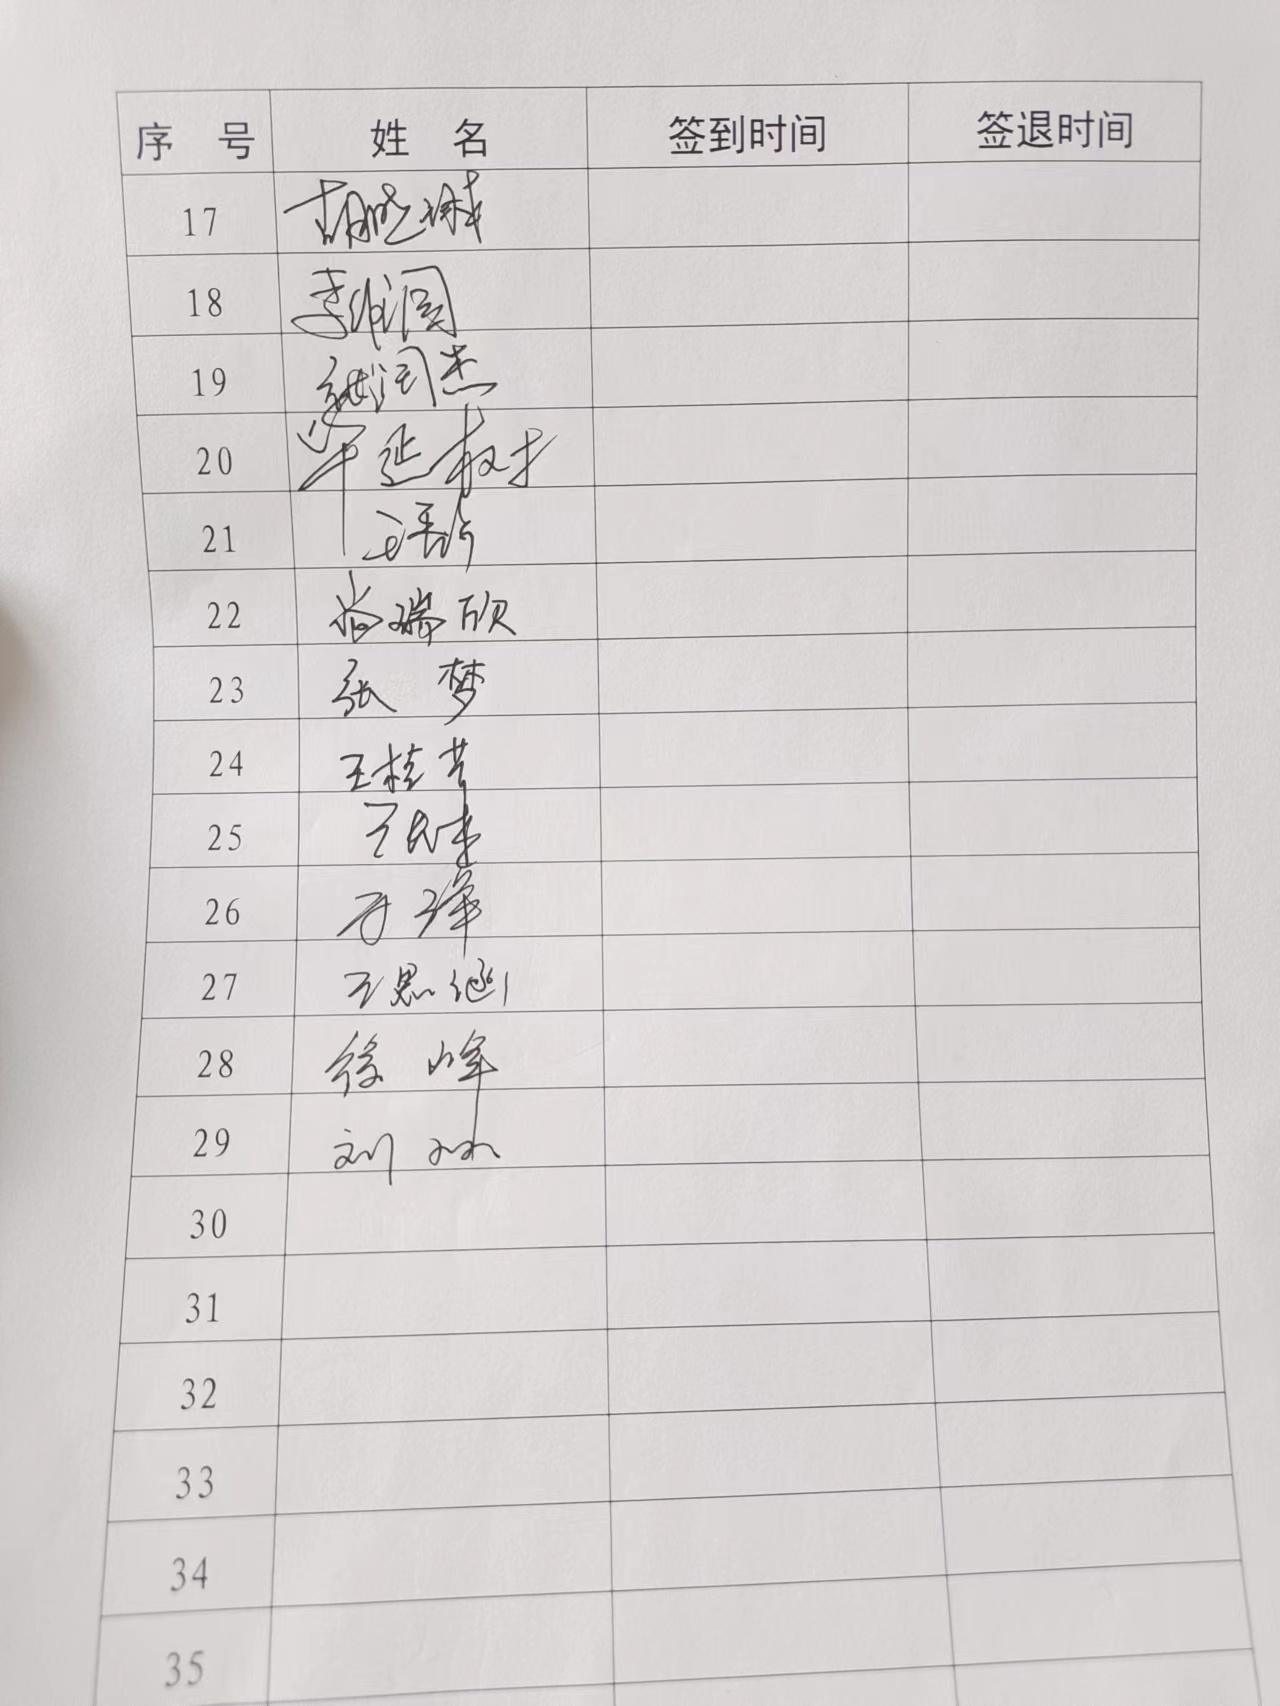 序 号 姓 名 签到时间 签退时间
17 胡晓琳
18 李维国
19 润杰
20 延
21
22 尚瑞欣
23 张 梦
24 王桂芳
25 王
26 于泽
27 王思涵
28 徐 峰
29 刘
30
31
32
33
34
35